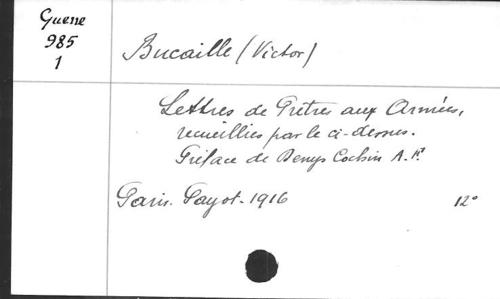 Guerre
985
1
Bucaille (Victor)
Lettres de Prêtres aux Armées,
recueillies par le ci-dessus.
Préface de Denys Cochin
Paris. Payot. 1916 12°